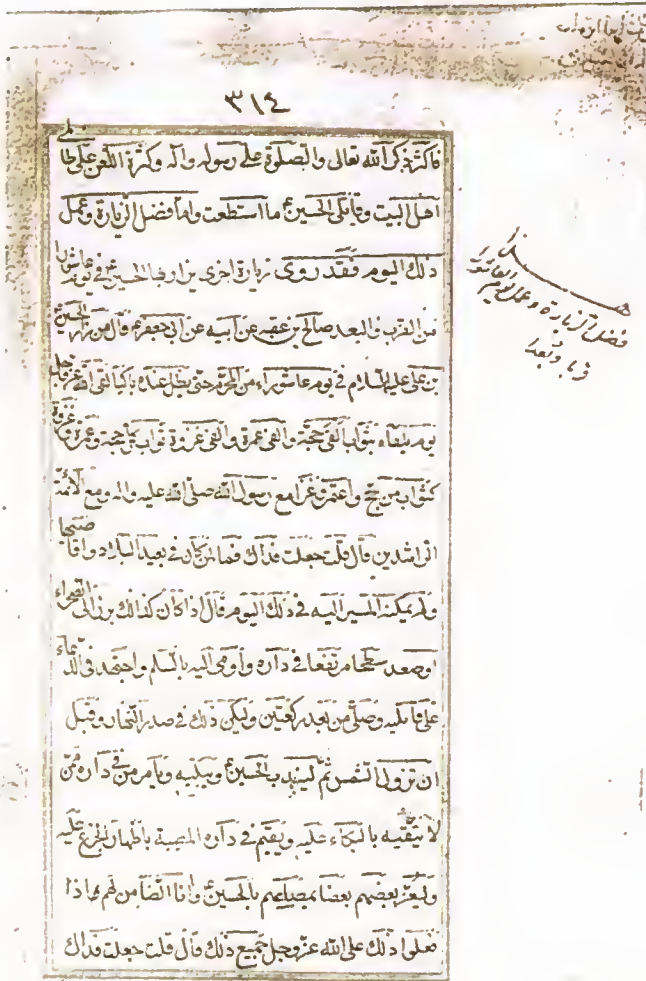 ٣١٤
فاكثر ذكر الله تعالى والصلوة على رسوله وآله وكثرة اللعن على ظالمى
اهل البيت وقاتلى الحسين ع ما استطعت واما فضل الزيارة وعمل
ذلك اليوم فقد روى زيارة اخرى يزار بها الحسين ع فى يوم عاشورا
من القرب والبعد صالح بن عقبه عن ابيه عن ابى جعفر ع قال من زار الحسين
بن على عليه السلام فى يوم عاشوراء من المحرم حتى يظل عنده باكيا لقى الله عز وجل
يوم يلقاه بثواب الفى حجة والفى عمرة والفى غزوة ثواب كل حجة وعمرة وغزوة
كثواب من حج واعتمر وغزا مع رسول الله صلى الله عليه واله ومع الائمة
الراشدين قال قلت جعلت فداك فما لمن كان فى بعيد البلاد واقاصيها
ولم يمكنه المسير اليه فى ذلك اليوم قال اذا كان كذلك برز الى الصحراء
او صعد سطحا مرتفعا فى داره واومى اليه بالسلم واجتهد فى الدعاء
على قاتليه وصلى من بعد ركعتين وليكن ذلك فى صدر النهار وقبل
ان تزول الشمس ثم ليندب الحسين ع ويبكيه ويامر من فى داره ممن
لا يتقيه بالبكاء عليه ويقيم فى داره المصيبة باظهار الجزع عليه
وليعز بعضهم بعضا بمصابهم بالحسين ع وانا الضامن لهم اذا
فعلوا ذلك على الله عز وجل جميع ذلك قال قلت جعلت فداك
هذا
فضل الزيارة وعمل يوم العاشورا
قربا وبعدا